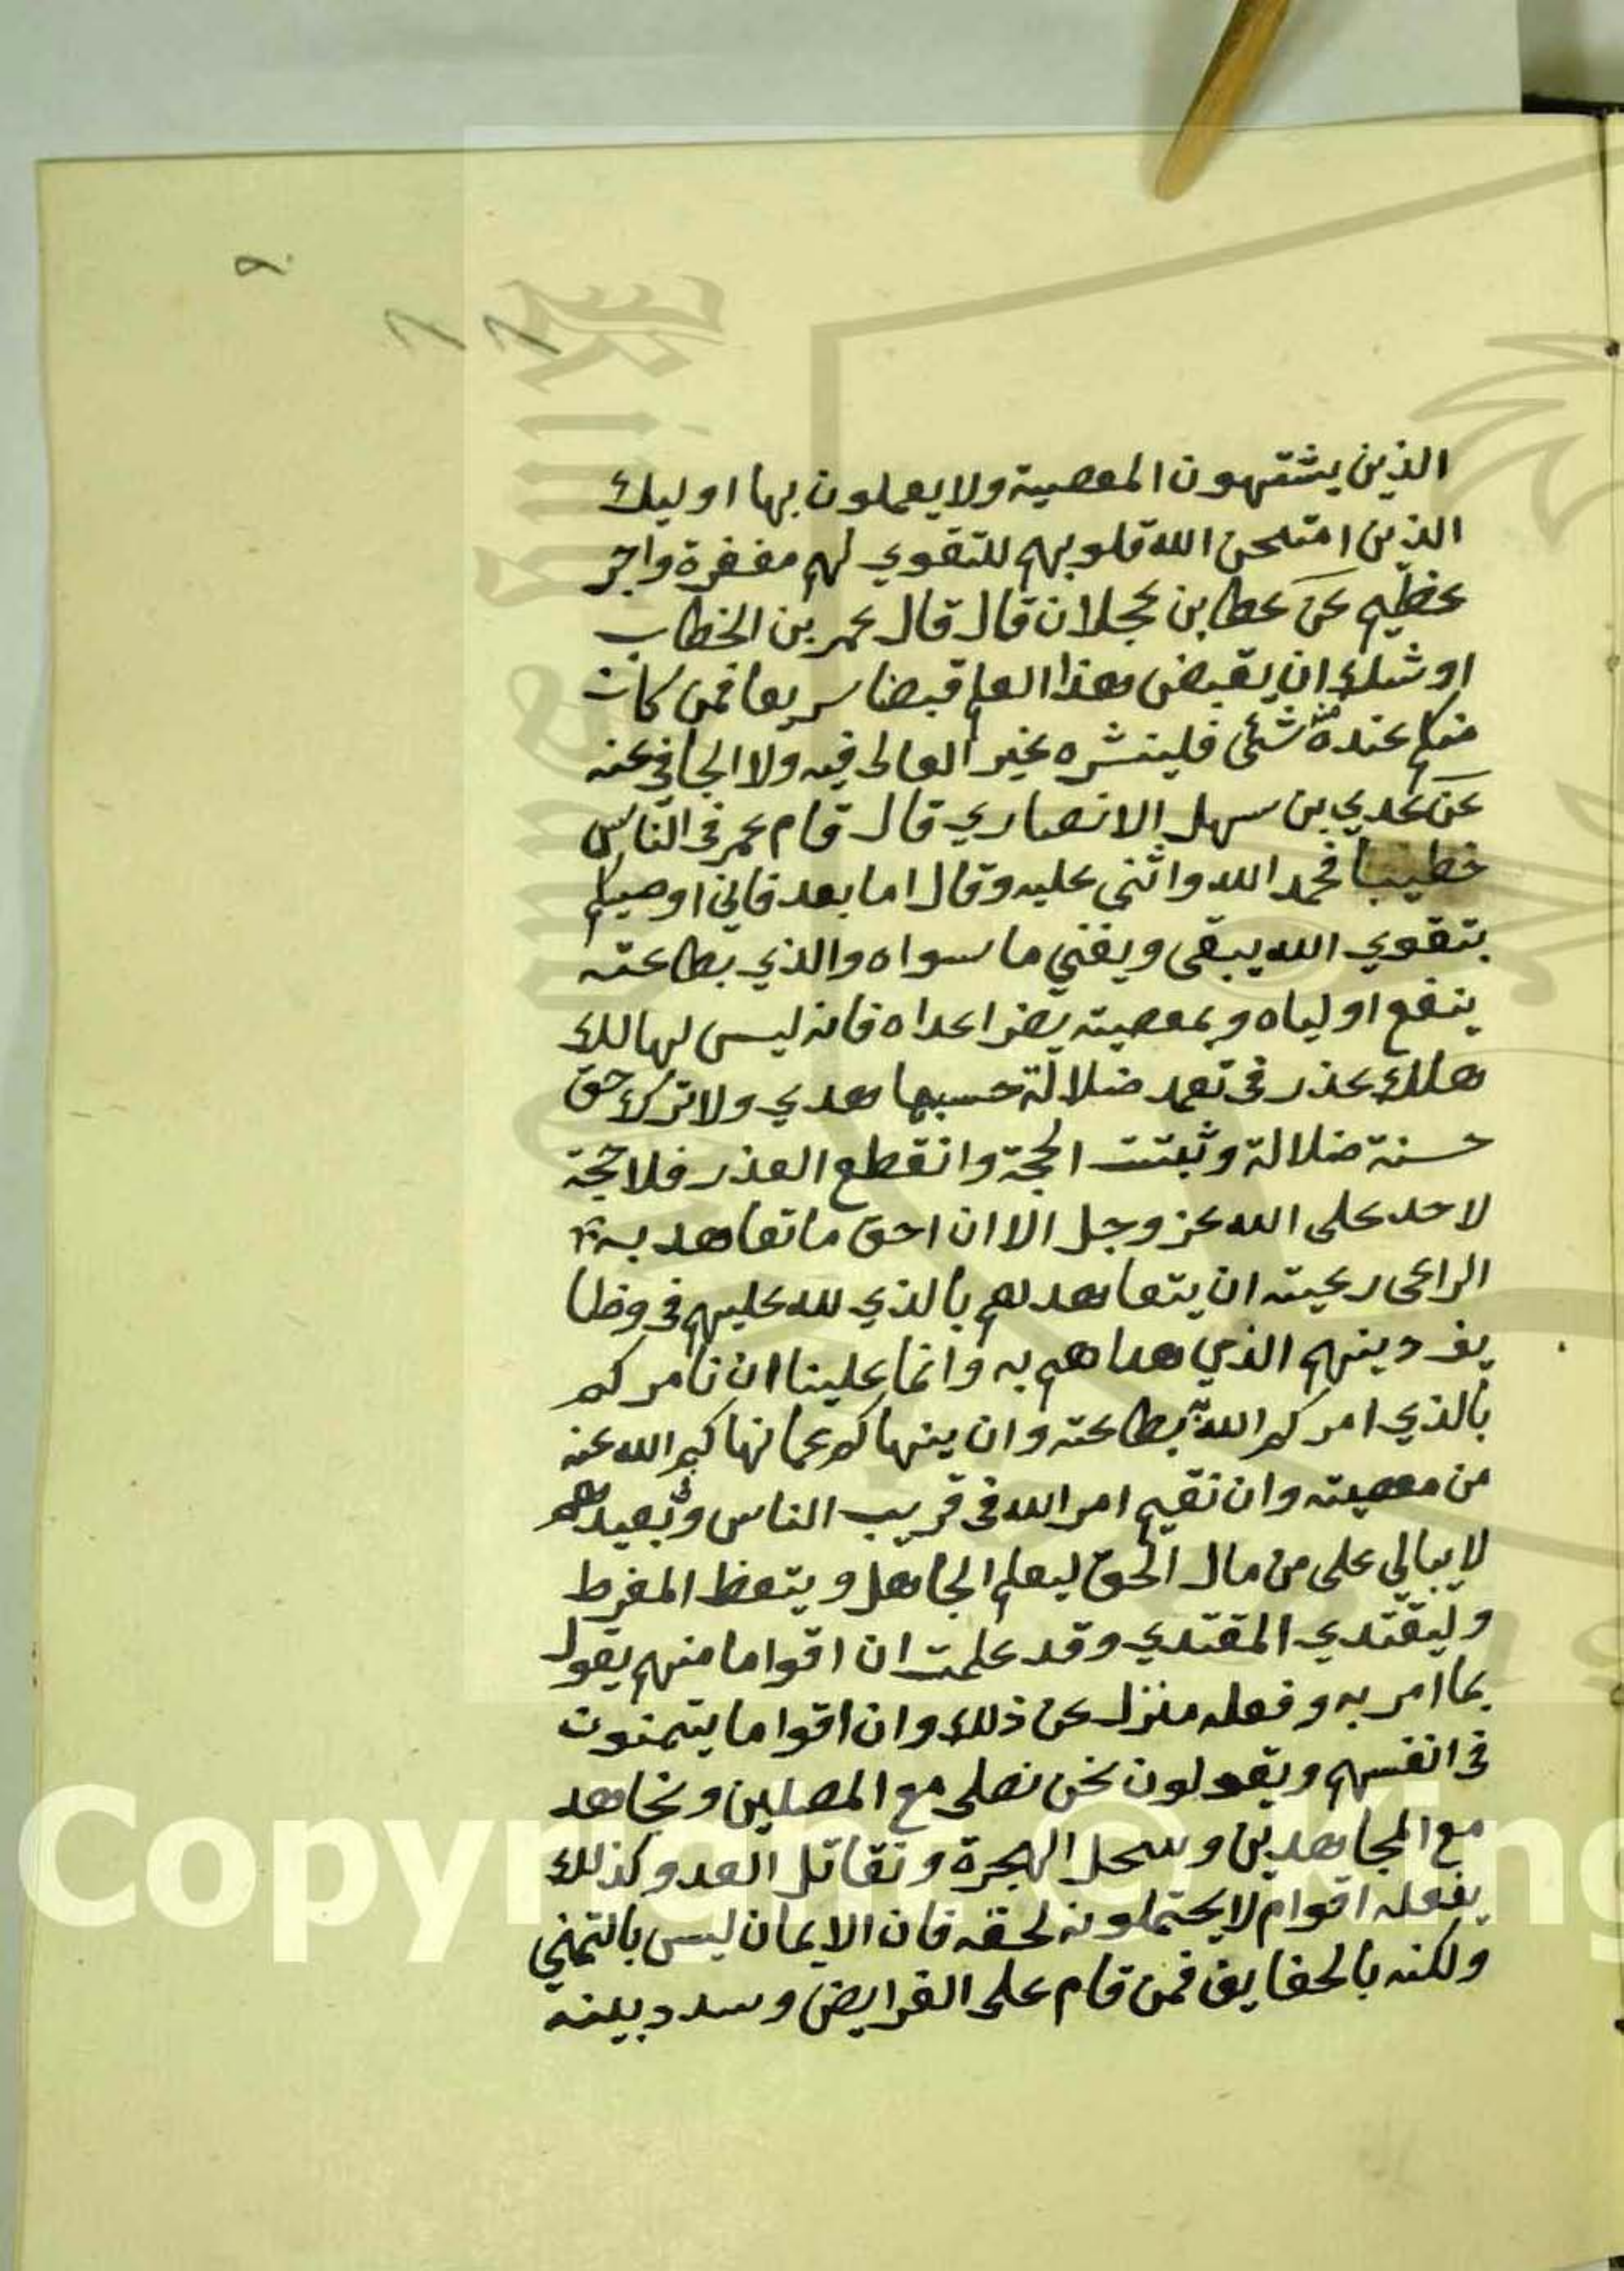 الذين يشتهون المعصية ولا يعملون بها اوليك
الذين امتحن الله قلوبهم للتقوي لهم مغفرة واجر
عظيم عن عطا بن عجلان قال قال عمر بن الخطاب
اوشك ان يقبض هذا العلم قبضا سريعا فمن كان
منكم عنده منه شئ فلينشره غير الغالى فيه ولا الجافى عنه
عن عدي بن سهل الانصاري قال قام عمر فى الناس
خطيبا فحمد الله واثنى عليه وقال اما بعد فانى اوصيكم
بتقوي الله يبقى ويفني ما سواه والذي بطاعته
ينفع اولياه وبمعصيته يضر اعداه فانه ليس لهالك
هلك عذر فى تعمد ضلالة حسبها هدي ولا ترك حق
حسنة ضلالة وثبتت الحجة وانقطع العذر فلا حجة
لاحد على الله عز وجل الا ان احق ما تعاهد به
الراعى رعيته ان يتعاهدهم بالذي لله عليهم فى وظا
يف دينهم الذي هداهم به وانما علينا ان نامركم
بالذي امركم الله به بطاعته وان ينهاكم عما نهاكم الله عنه
من معصيته وان نقيم امر الله فى قريب الناس وبعيدهم
لا يبالي على من مال الحق ليعلم الجاهل ويتعظ المفرط
وليقتدي المقتدي وقد علمت ان اقواما منهم يقول
بما امر به وفعله منزل عن ذلك وان اقواما يتمنون
فى انفسهم ويقولون نحن نصلى مع المصلين ونجاهد
مع المجاهدين وسحل الهجرة ونقاتل العدو كذلك
يفعله اقوام لا يحتملونه لحقه فان الايمان ليس بالتمني
ولكنه بالحقايق فمن قام على الفرايض وسدد بينه
Copyright © King